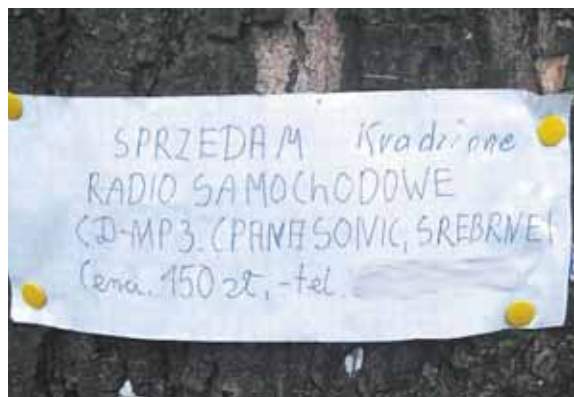 SPRZEDAM Kradzione
RADIO SAMOChODOWE
CD-MP3. (PANASONIC, SREBRNE)
Cena. 150 zł, -tel.